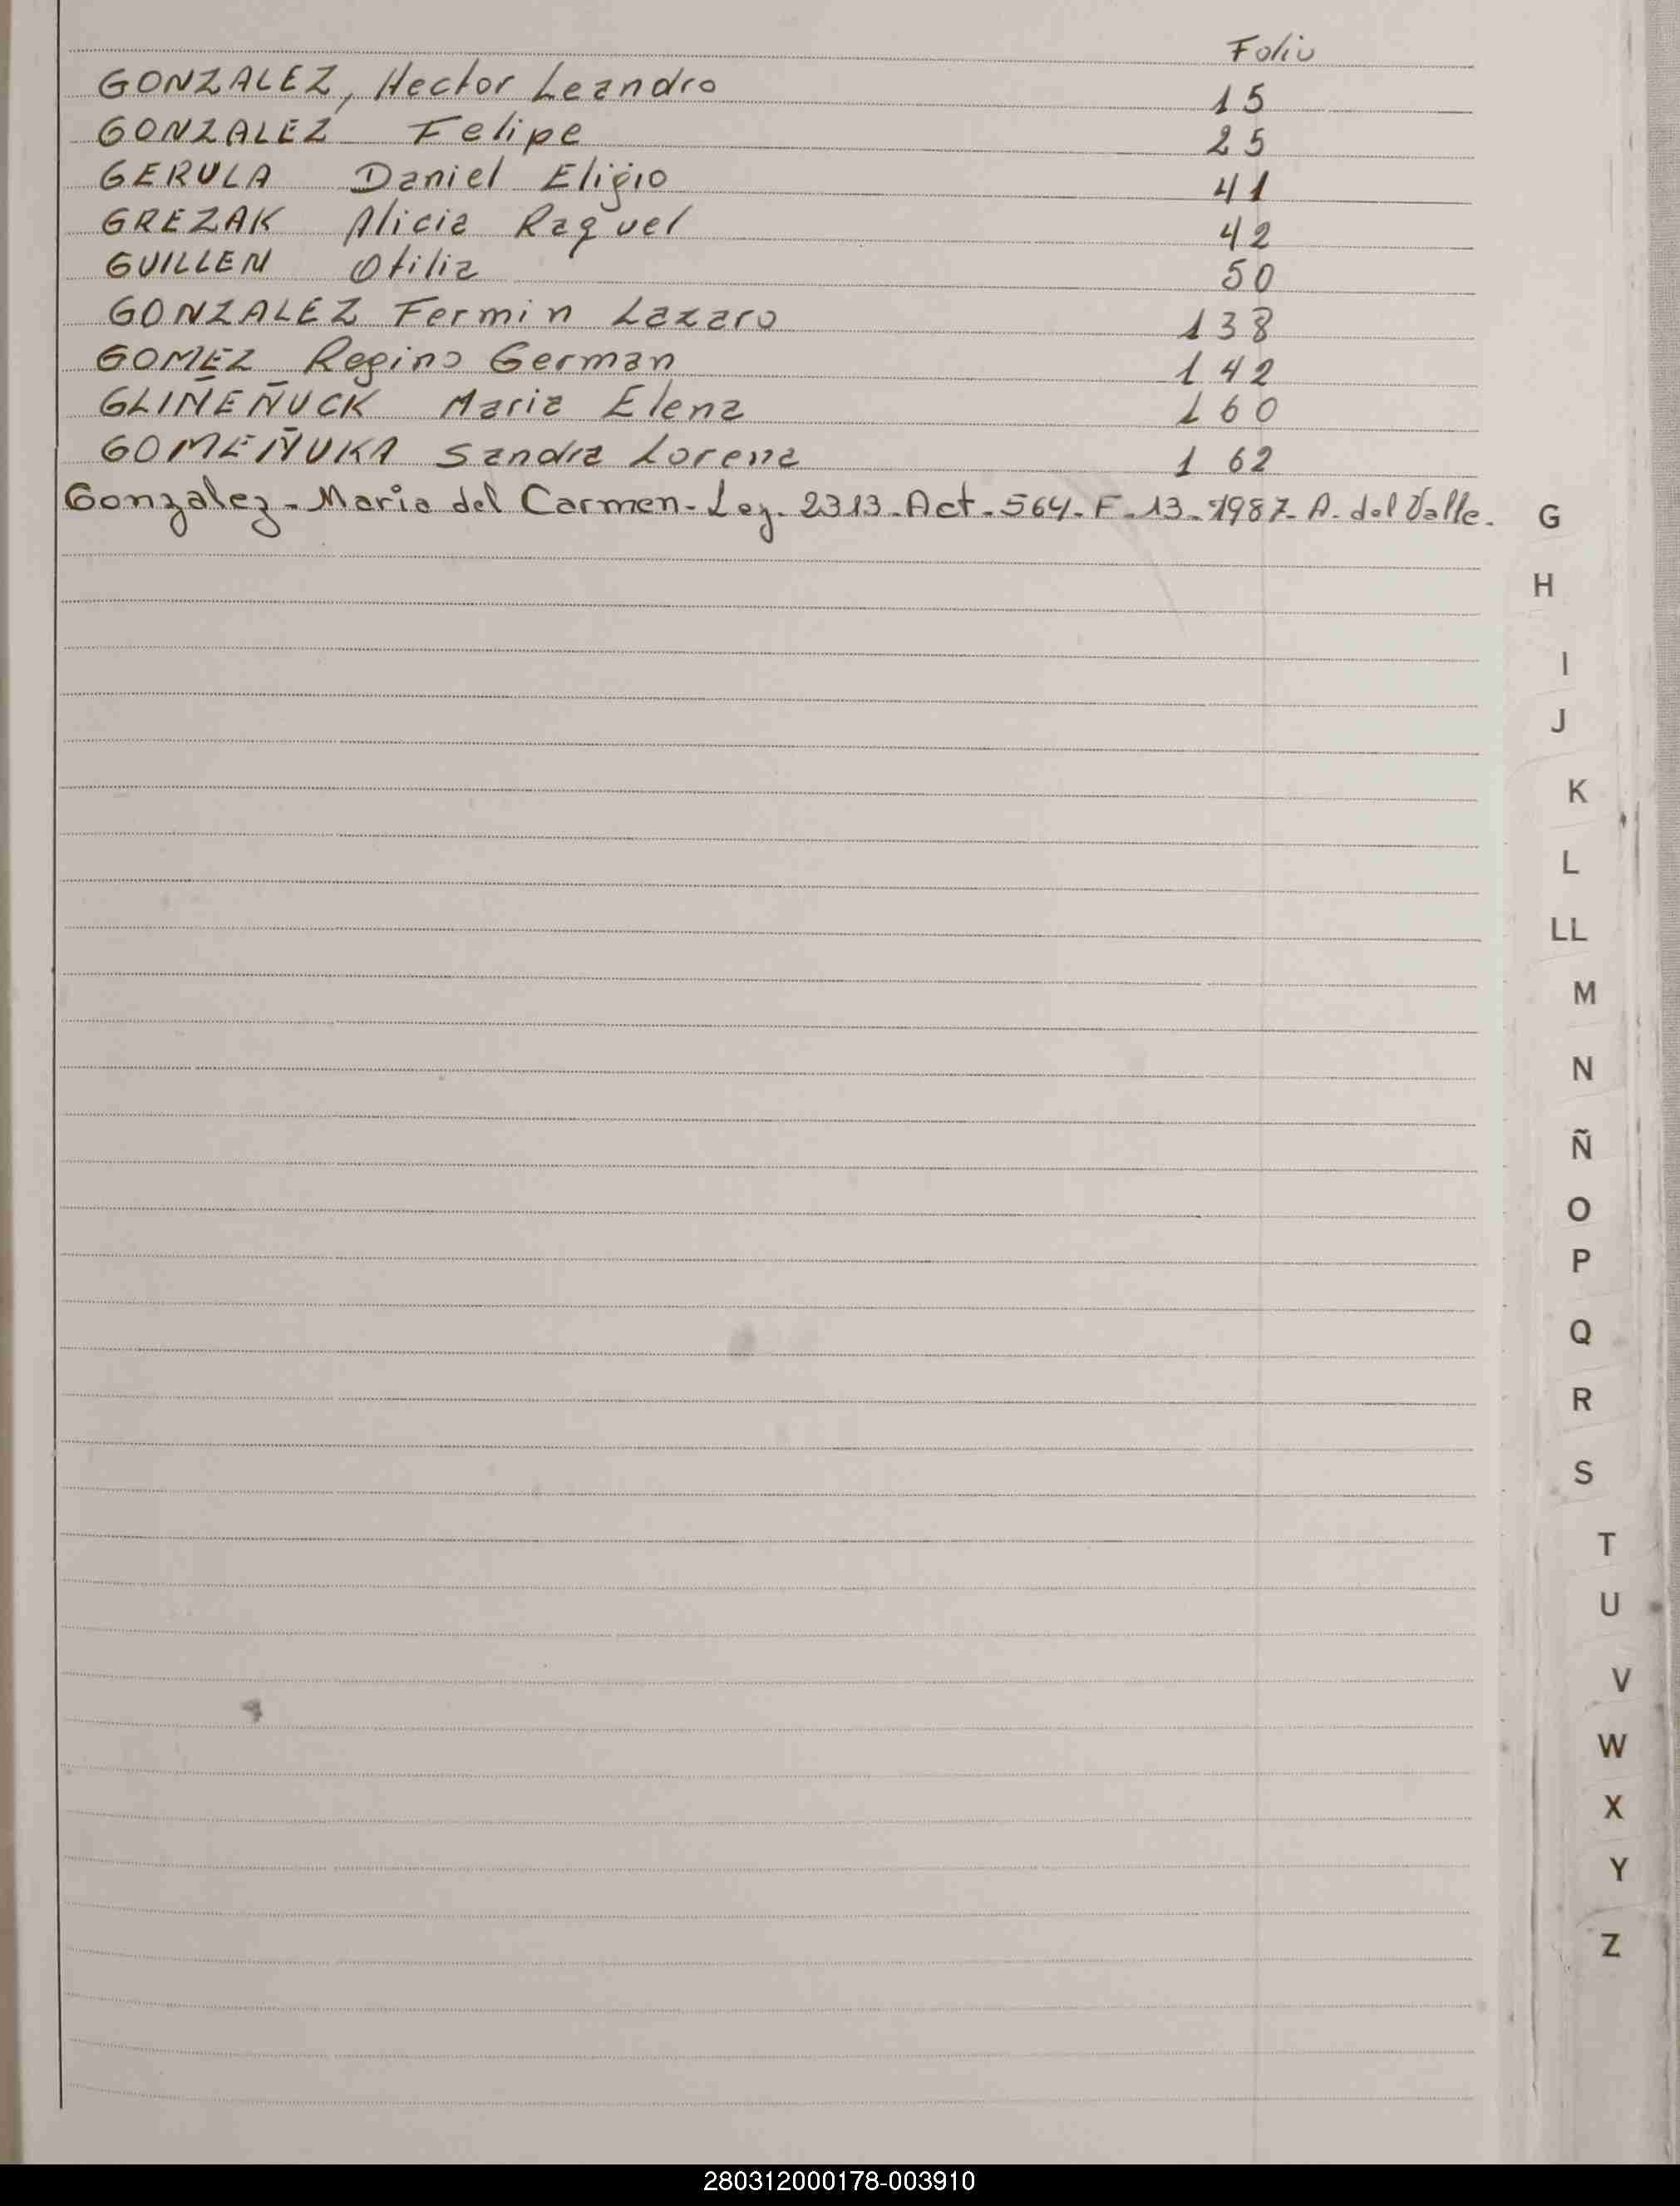 Folio
GONZALEZ, Hector Leandro 15
GONZALEZ Felipe 25
GERULA Daniel Eligio 41
GREZAK Alicia Raquel 42
GUILLEN Otilia 50
GONZALEZ Fermin Lazaro 138
GOMEZ Regino German 142
GLIÑEÑUCK Maria Elena 160
GOMEÑUKA Sandra Lorena 162
Gonzalez - Maria del Carmen - Leg. 2313 - Act - 564 - F - 13 - 1987 - A. del Valle.
G
H
I
J
K
L
LL
M
N
Ñ
O
P
Q
R
S
T
U
V
W
X
Y
Z
280312000178-003910